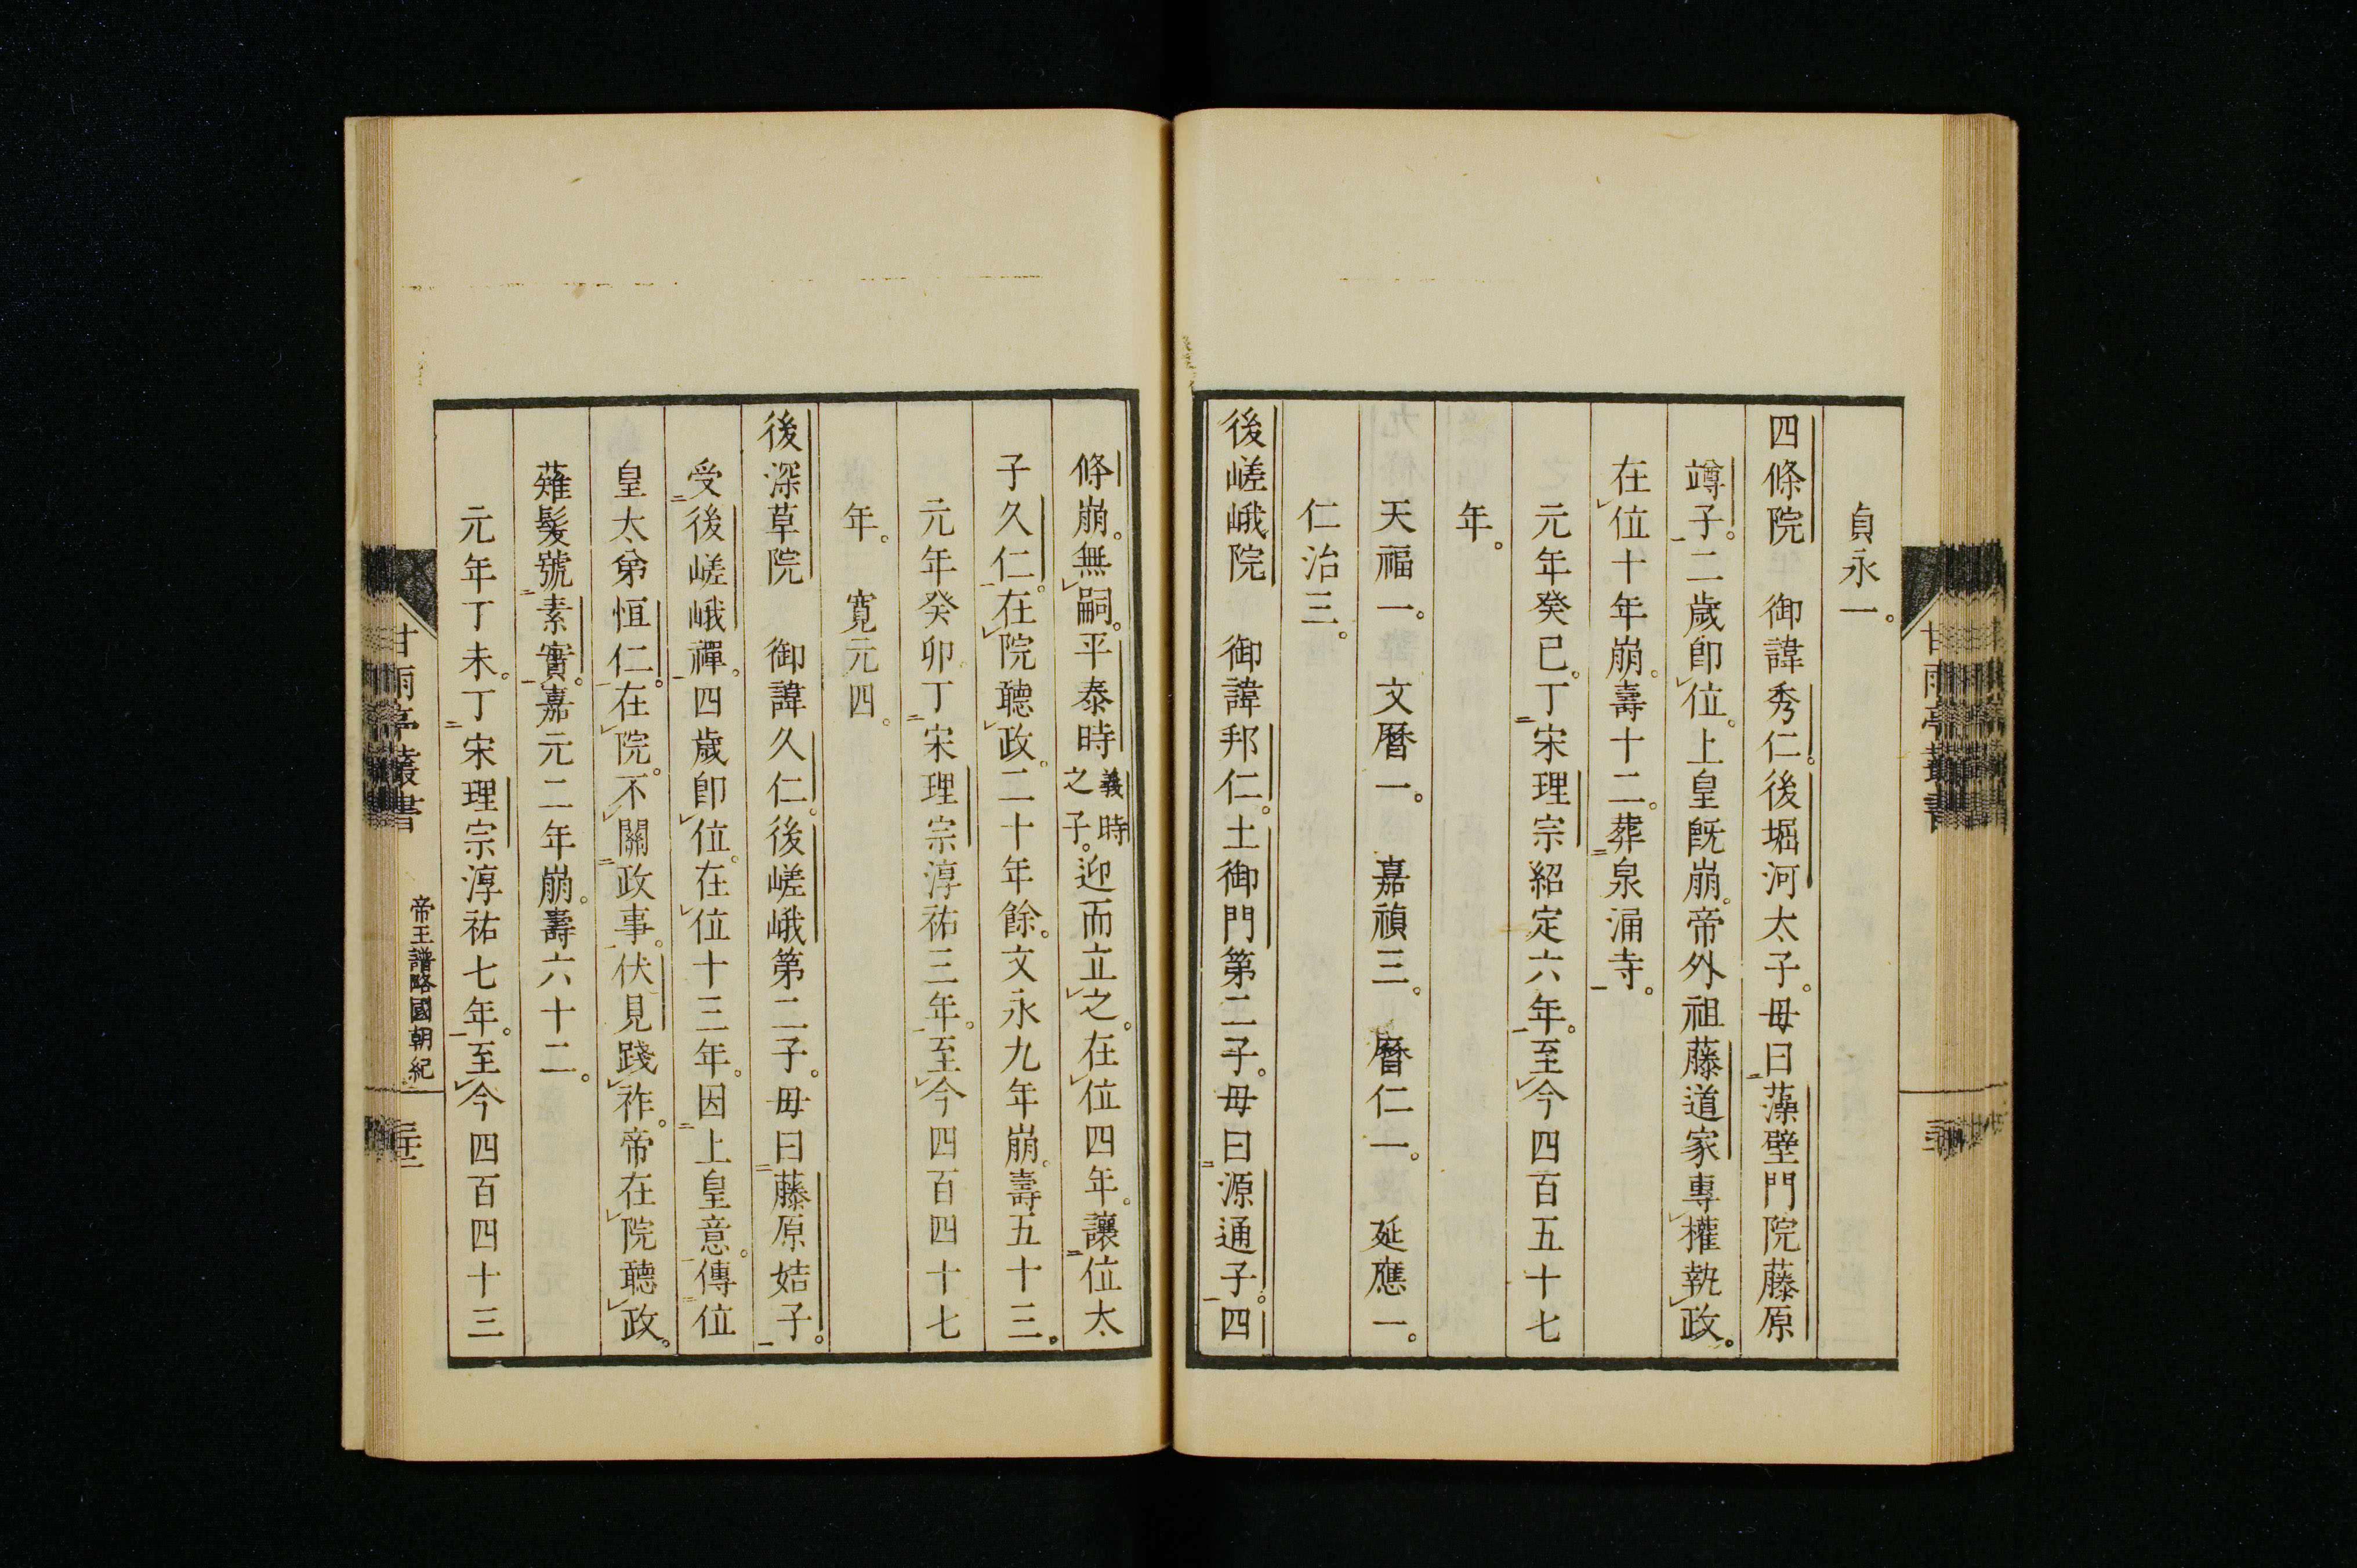 貞永一。
四條院　御諱秀仁。後堀河太子。母曰藻壁門院藤原
竴子。二歲卽位。上皇旣崩。帝外祖藤道家專權執政。
在位十年崩。壽十二。葬泉涌寺。
元年癸巳。丁宋理宗紹定六年。至今四百五十七
年。
天福一。　文曆一。　嘉禎三。　曆仁一。　延應一。
仁治三。
後嵯峨院　御諱邦仁。土御門第二子。母曰源通子。四
條崩。無嗣。平泰時義時之子。迎而立之。在位四年。讓位太
子久仁。在院聽政。二十年餘。文永九年崩。壽五十三。
元年癸卯。丁宋理宗淳祐三年。至今四百四十七
年。　寬元四。
後深草院　御諱久仁。後嵯峨第二子。母曰藤原姞子。
受後嵯峨禪。四歲卽位。在位十三年。因上皇意。傳位
皇太弟恒仁。在院。不關政事。伏見踐祚。帝在院聽政。
薙髮號素實。嘉元二年崩。壽六十二。
元年丁未。丁宋理宗淳祐七年。至今四百四十三
甘雨亭叢書
帝王譜略國朝紀
甘雨亭叢書